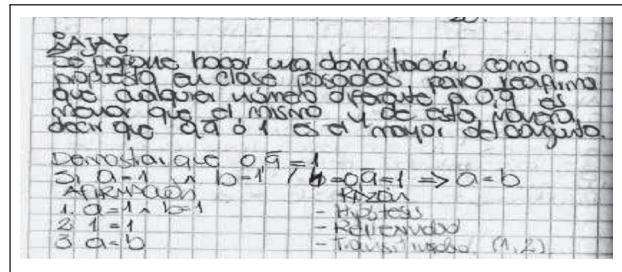 Se propone hacer una demostración como la
propuesta en clase pasadas, para reafirma
que cualquier número diferente a 0,9̅ es
menor que el mismo y de esta manera
decir que 0,9̅ o 1 es el mayor del conjunto.
Demostrar que 0,9̅ = 1
Si a = 1 ∧ b = 1 / b = 0,9̅ = 1 ⇒ a = b
AFIRMACIÓN RAZÓN
1. a = 1 ∧ b = 1 - Hipótesis
2 1 = 1
3 a = b - Transitividad (1,2)